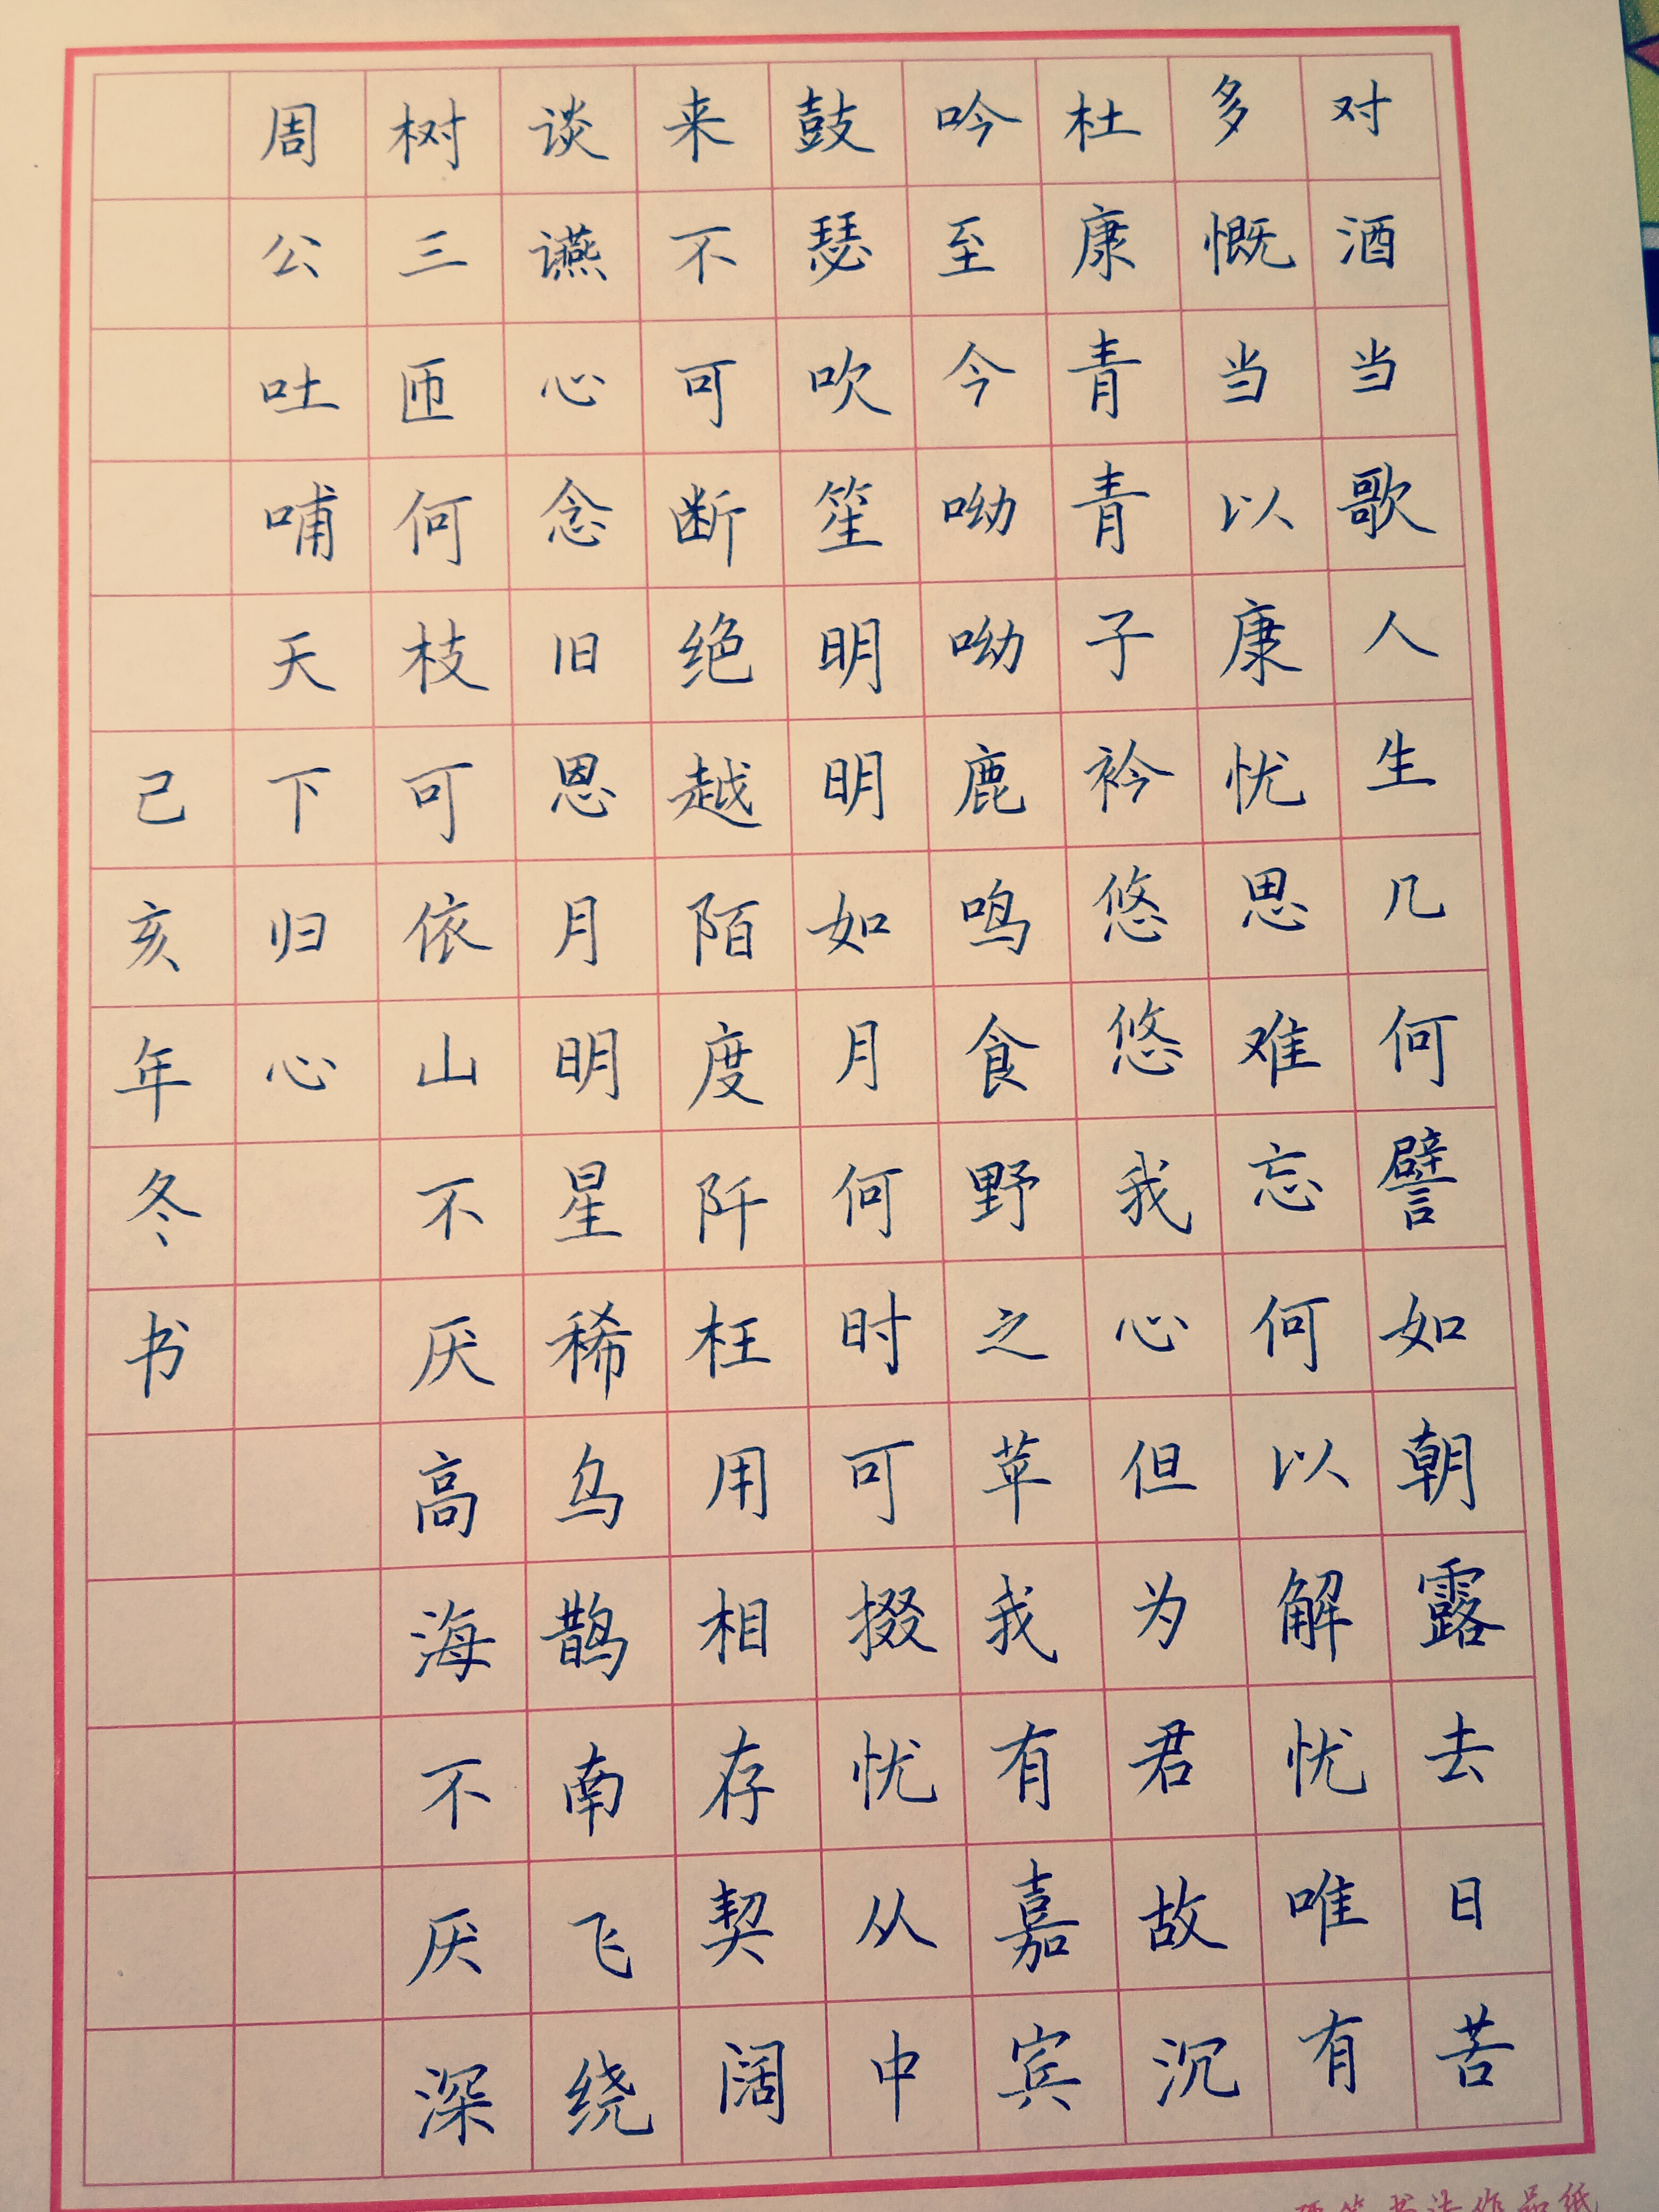 对酒当歌人生几何譬如朝露去日苦
多慨当以康忧思难忘何以解忧唯有
杜康青青子衿悠悠我心但为君故沉
吟至今呦呦鹿鸣食野之苹我有嘉宾
鼓瑟吹笙明明如月何时可掇忧从中
来不可断绝越陌度阡枉用相存契阔
谈䜩心念旧恩月明星稀乌鹊南飞绕
树三匝何枝可依山不厌高海不厌深
周公吐哺天下归心
己亥年冬书
硬笔书法作品纸